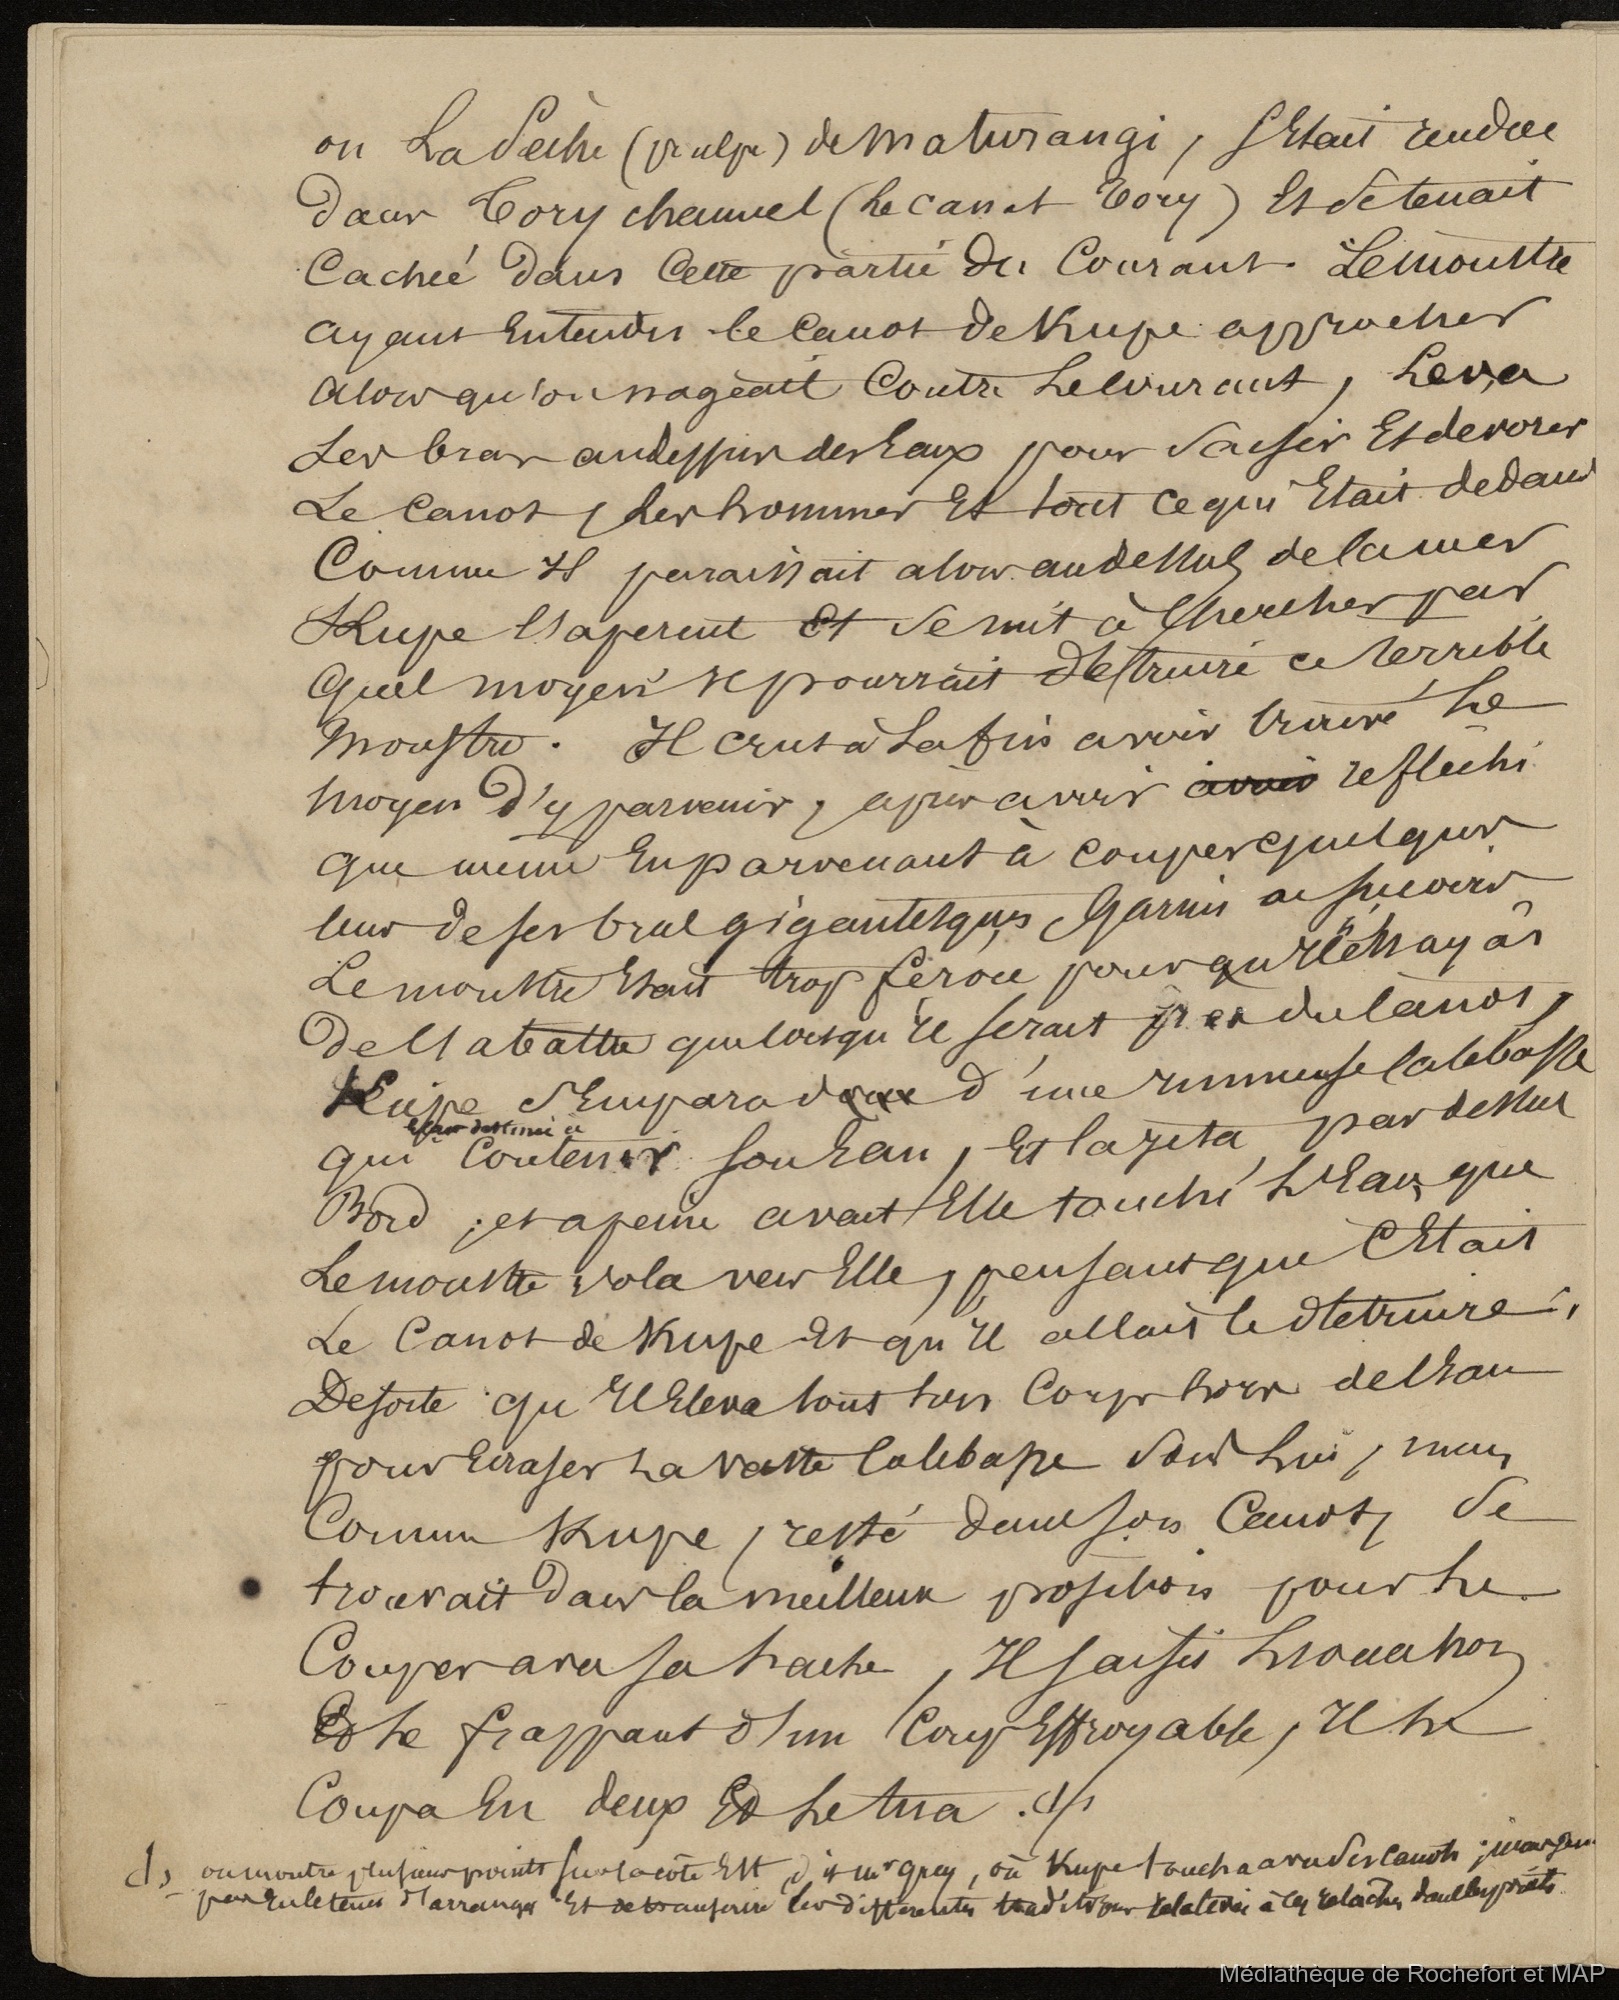 ou La Seiche (poulpe) de Maturangi, s'était rendue
dans Tory channel (le canal Tory) Et se tenait
Cachée dans Cette partie du Courant. Le monstre
ayant Entendu le Canot de Kupe approcher
alors qu'on nageait Contre Le Courant, Leva
Les bras audessus des Eaux pour Saisir Et devorer
Le Canot, Les hommes Et tout ce qui Etait dedans
Comme Il paraissait alors audessus de la mer
Kupe l'aperçut Et Se mit à Chercher par
Quel moyen il pourrait détruire ce terrible
monstre. Il crut à La fin avoir trouvé Le
moyen d'y parvenir, après avoir avoir reflechi
que même En parvenant à couper quelques
uns de ses bras gigantesques, Garnis de suçoirs
Le monstre Etait trop féroce pour qu'il Essayât
de l'abattre que lorsqu'il serait près du Canot,
Kupe s'Empara donc d'une immense Calebasse
etait destinée à
qui Contenir son Eau, Et la jeta par dessus
Bord, et a peine avait Elle touché L'Eau, que
Le monstre vola vers Elle, pensant que C'Etait
Le Canot de Kupe Et qu'Il allait le détruire,
De sorte qu'Il Eleva tout son Corps hors de l'Eau
pour Ecraser La vaste Calebasse sous Lui, mais
Comme Kupe, resté dans son Canot, Se
trouvait dans la meilleure position pour Le
Couper avec sa hache, Il saisit L'occasion
Et Le frappant d'un Coup Effroyable, Il Le
Coupa En deux Et Le tua. d)
d) on montre plusieurs points sur la côte Est, dit mr Grey, où Kupe toucha avec ses canots;
peu Eu le tems d'arranger Et de transcrire les differentes traditions relatives à ces relâches dans les ports
Médiathèque de Rochefort et MAP